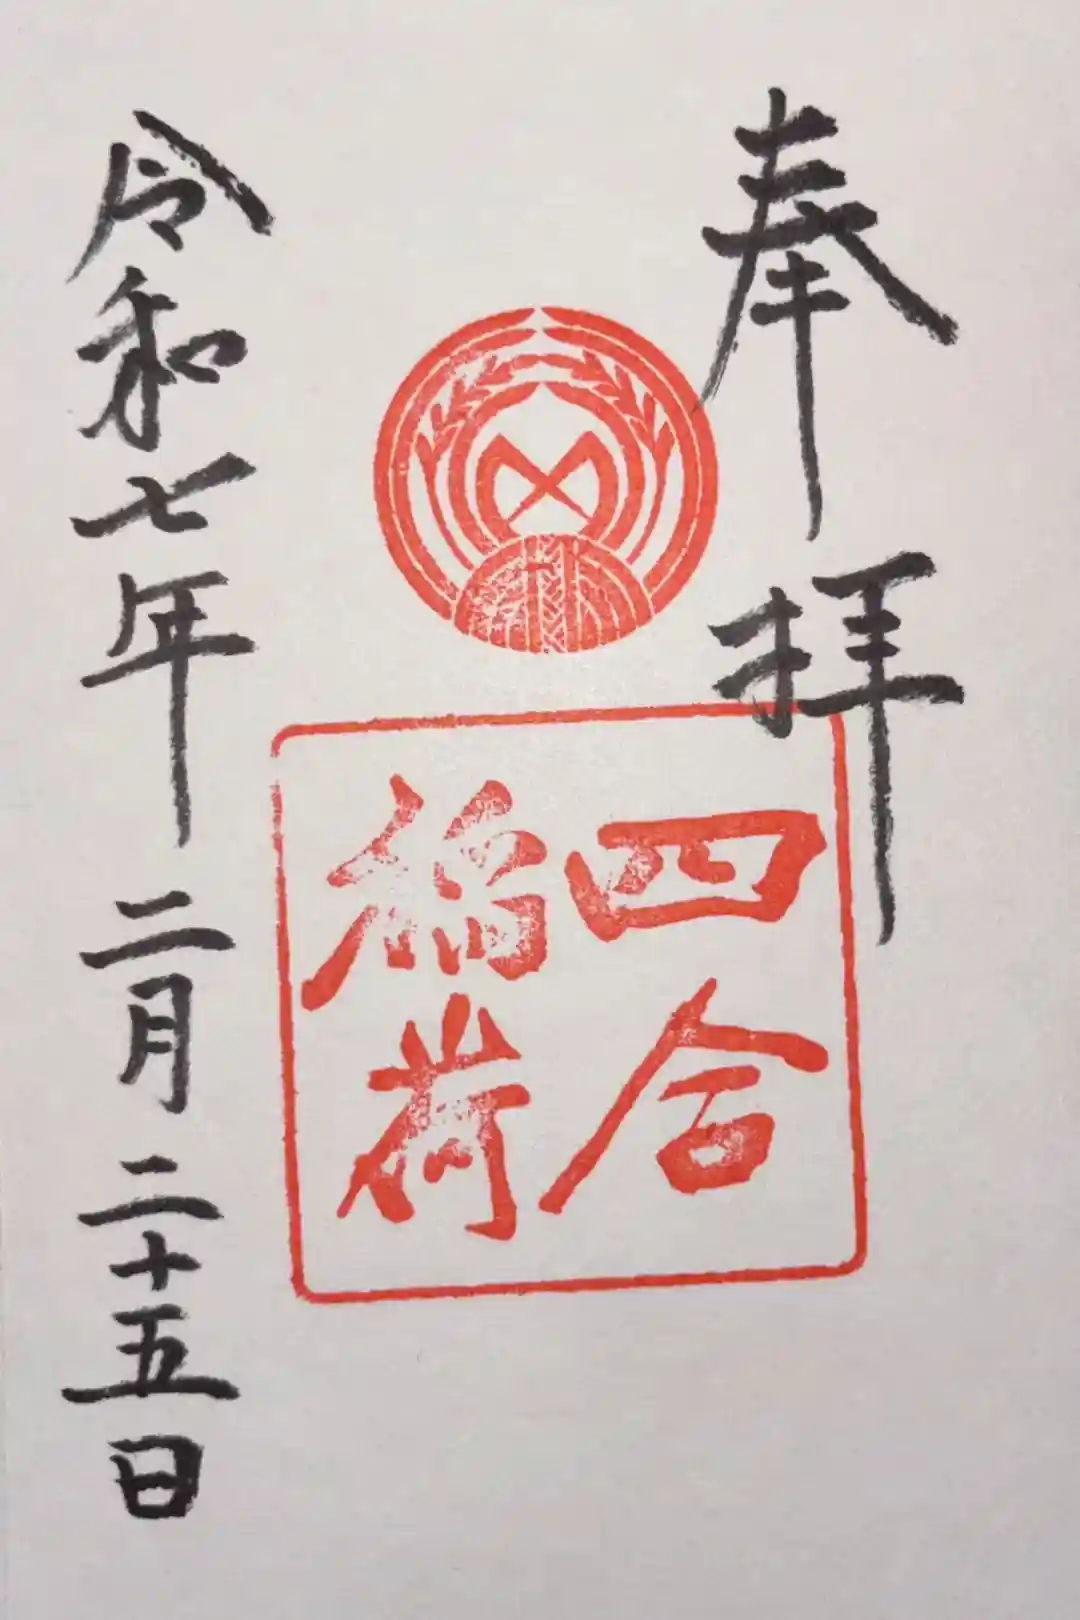 奉拝
四合
稲荷
令和七年二月二十五日